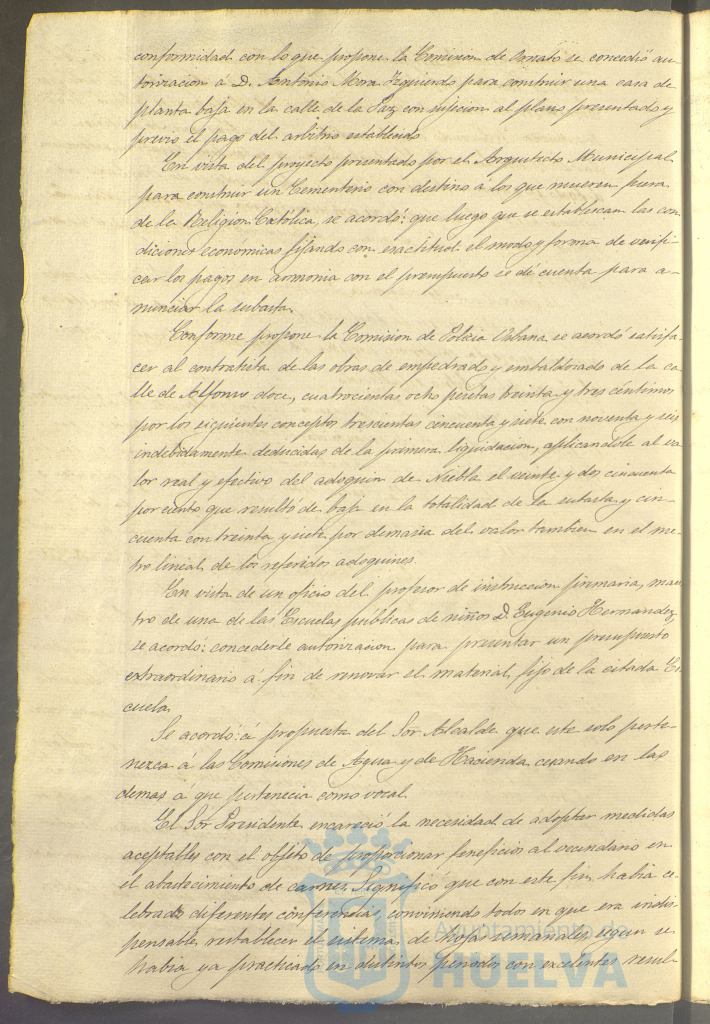 conformidad con lo que propone la Comision de Ornato se concedió au-
torizacion á D. Antonio Mora Izquierdo para construir una casa de
planta baja en la calle de la Paz con sujecion al plano presentado y
previo el pago del arbitrio establecido.
En vista del proyecto presentado por el Arquitecto Municipal
para construir un Cementerio con destino á los que mueran fuera
de la Religion Católica, se acordó: que luego que se establezcan las con
diciones economicas fijando con exactitud el modo y forma de verifi-
car los pagos en armonia con el presupuesto se dé cuenta para a-
nunciar la subasta.
Conforme propone la Comision de Policia Urbana se acordó satisfa-
cer al contratista de las obras de empedrado y embaldosado de la ca-
lle de Alfonso doce, cuatrocientas ocho pesetas treinta y tres céntimos
por los siguientes conceptos trescientas cincuenta y siete con noventa y seis
indebidamente deducidas de la primera liquidacion, aplicandole al va-
lor real y efectivo del adoquin de Niebla el veinte y dos cincuenta
por ciento que resultó de baja en la totalidad de la subasta y cin-
cuenta con treinta y siete por demasia del valor tambien en el me-
tro lineal de los referidos adoquines.
En vista de un oficio del profesor de instruccion primaria, maes
tro de una de las Escuelas públicas de niños D. Eugenio Hernandez,
se acordó: concederle autorizacion para presentar un presupuesto
extraordinario á fin de renovar el material fijo de la citada Es
cuela.
Se acordó: á propuesta del Sor Alcalde que este solo perte-
nezca á las Comisiones de Agua y de Hacienda cesando en las
demas á que pertenecia como vocal.
El Sor Presidente encareció la necesidad de adoptar medidas
aceptables con el objeto de proporcionar beneficios al vecindario en
el abastecimiento de carnes. Significó que con este fin habia ce-
lebrado diferentes conferencias, conviniendo todos en que era indis-
pensable restablecer el sistema de hojas semanales, segun se
habia ya practicado en distintos periodos con excelentes resul-
Ayuntamiento de
HUELVA